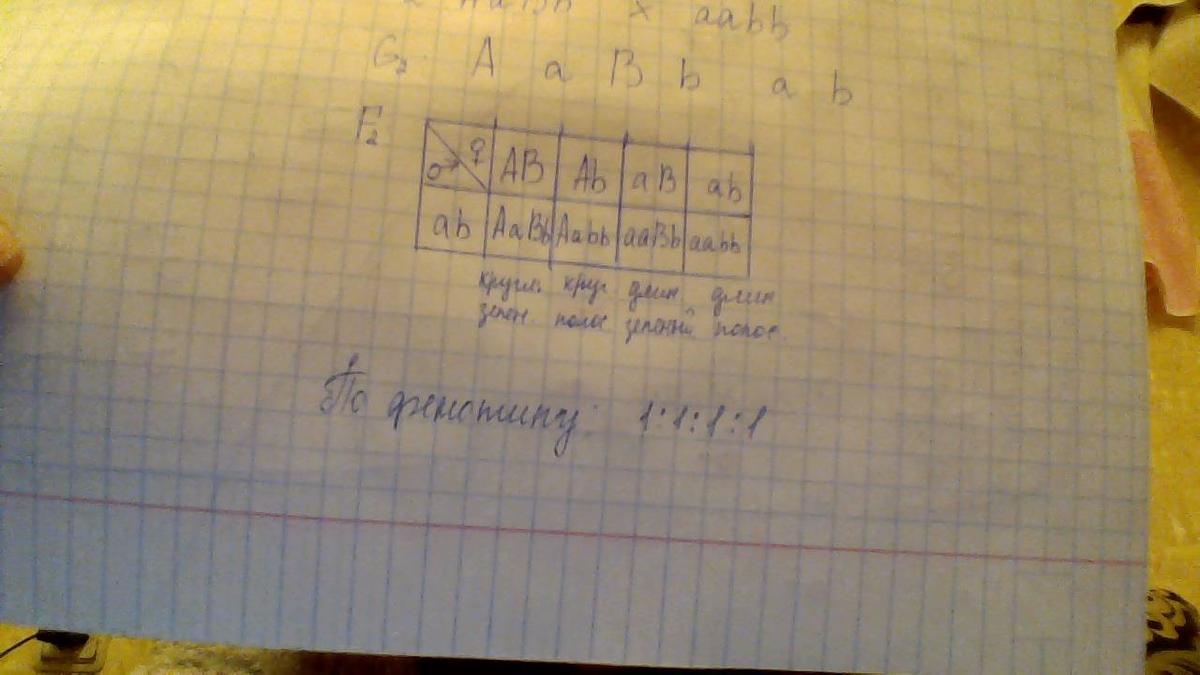 AaBb × aabb
G₂ A a B b a b
F₂
♂ ♀ AB Ab aB ab
ab AaBb Aabb aaBb aabb
кругл. круг длин длин
зелен. полос зеленый полос.
По фенотипу: 1:1:1:1